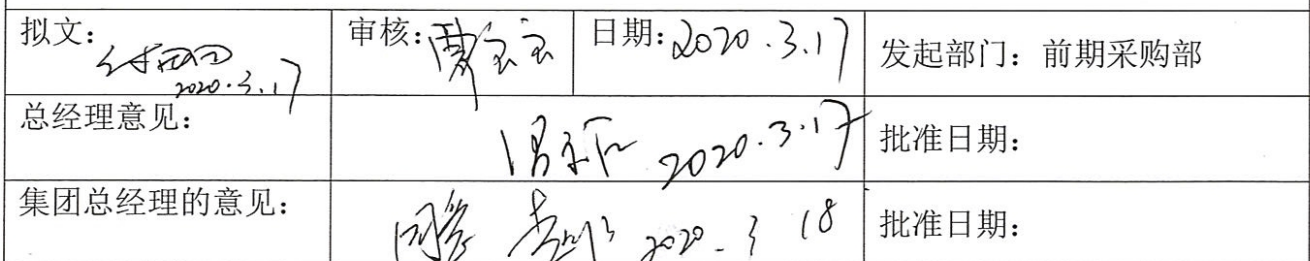 拟文：
2020.3.17
审核：
日期：2020.3.17
发起部门：前期采购部
总经理意见：
2020.3.17
批准日期：
集团总经理的意见：
同意 2020.3 18
批准日期：